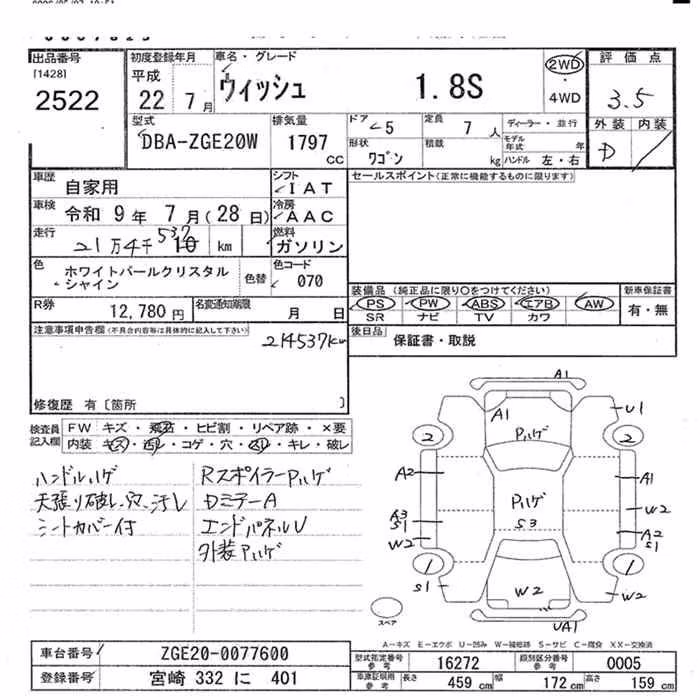 出品番号
[1428]
2522
初度登録年月
平成
22 7月
車名・グレード
ウィッシュ 1.8S
2WD
・
4WD
評価点
3.5
外装 内装
D
型式
DBA-ZGE20W
排気量
1797
cc
ドア
5
定員
7人
ディーラー・並行
モデル年式 年
形状
ワゴン
積載
kg
ハンドル 左・右
車歴
自家用
シフト
IAT
車検
令和 9年 7月(28日)
冷房
AAC
走行
21万4千537 km
燃料
ガソリン
色
ホワイトパールクリスタル
シャイン
色替
色コード
070
R券
12,780円
名変通知期限
月 日
セールスポイント(正常に機能するものに限ります)
装備品 (純正品に限り○をつけてください)
新車保証書
PS PW ABS エアB AW
SR ナビ TV カワ
有・無
後日品
保証書・取説
注意事項申告欄(不具合内容等は具体的に記入して下さい)
214537km
修復歴 有〔箇所 〕
検査員
記入欄
FW キズ・飛石・ヒビ割・リペア跡・×要
内装 キズ・汚レ・コゲ・穴・スレ・キレ・破レ
ハンドルハゲ
天張り破レ、穴、汚レ
シートカバー付
RスポイラーPハゲ
DミラーA
エンドパネルU
外装Pハゲ
A1
A1
U1
Pハゲ
2
2
A2
A1
Pハゲ
S3
A3
S1
W2
W2
A2
S1
1
1
S1
W2
W2
UA1
スペア
A-キズ E-エクボ U-凹み W-補修跡 S-サビ C-腐食 XX-交換済
車台番号
ZGE20-0077600
登録番号
宮崎 332 に 401
型式指定番号
参考
16272
類別区分番号
参考
0005
車庫証明用
参考
長さ 459 cm
幅 172 cm
高さ 159 cm